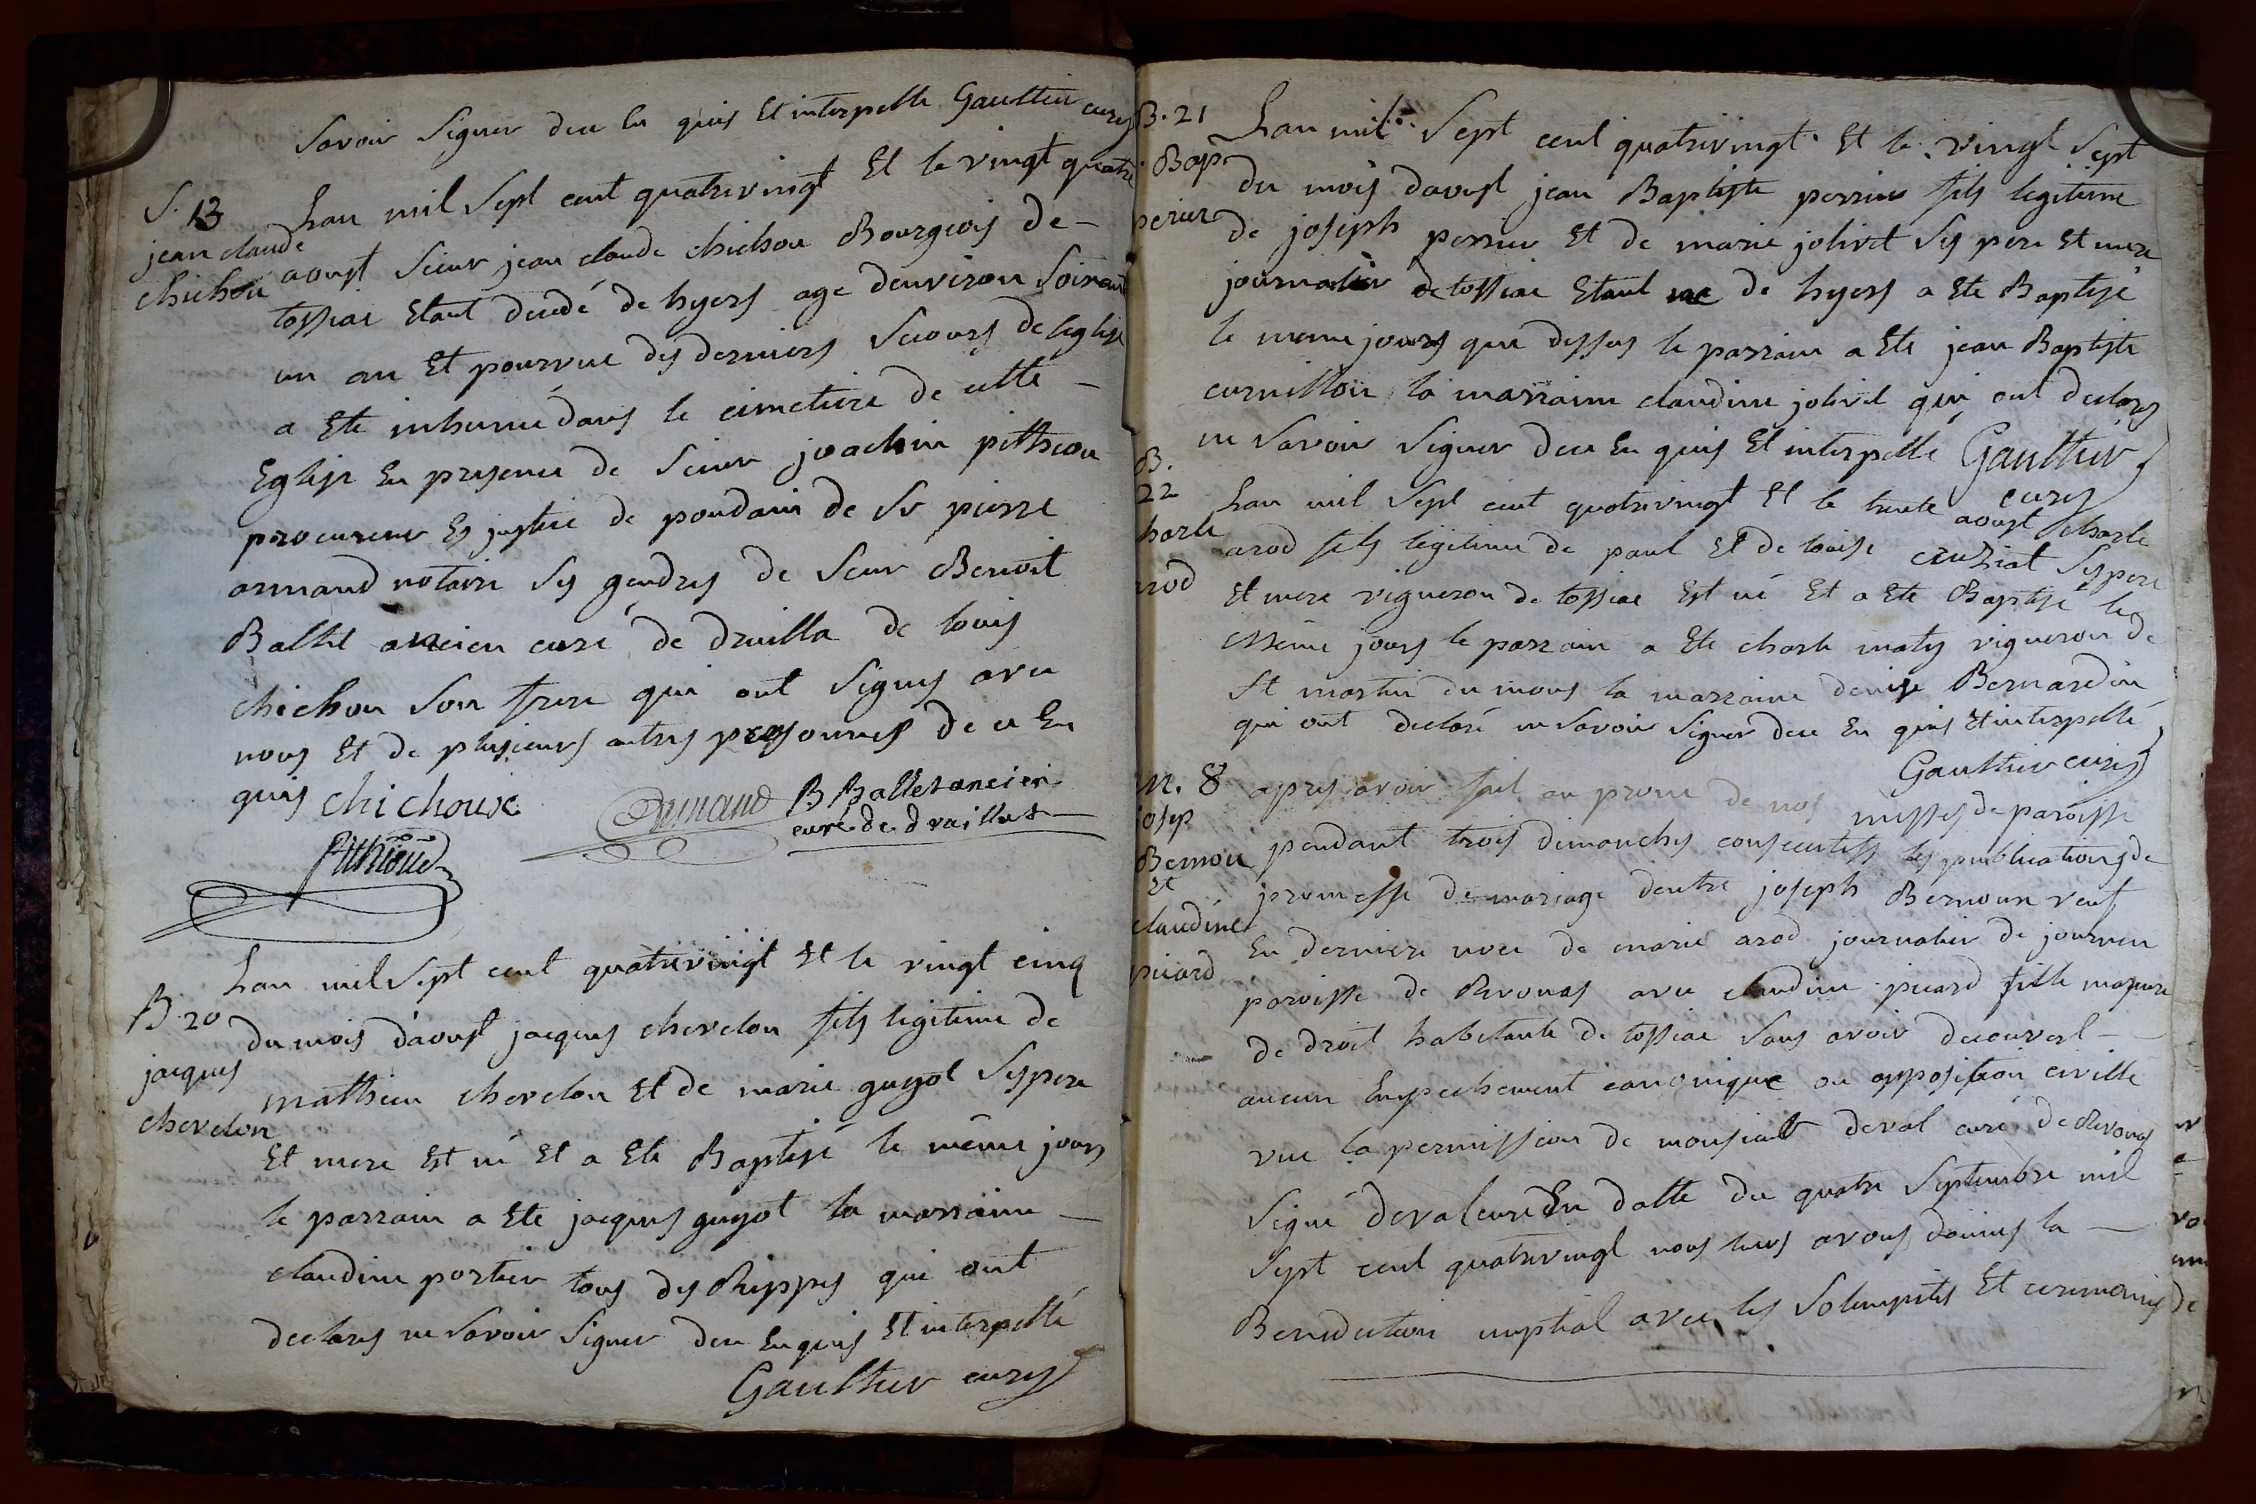 Savoir Signer dece En quis Et interpelle Gaulthier curé
S. 13
jean claude
chichou
Lan mil Sept cent quatrevingt Et le vingt quatre
aoust Sieur jean claude chichou Bourgeois de -
tossiac Etant decedé de hyers age denviron Soixant
un an Et pourvue des derniers Secours de leglise
a Ete inhumé dans le cimetiere de cette -
Eglise En presence de Sieur joachin pithiou
procureur Es justice de pondain de Sr pierre
armand notaire Ses gendres de Sieur Benoit
Ballet ancien curé de druilla de louis
chichou Son frere qui ont Signes avec
nous Et de plusieurs autres personnes de ce En
quis chichoux Armand B Ballet ancien
curé de draillat
Pithioud
B. 20
jacques
chevelon
Lan mil Sept cent quatrevingt Et le vingt cinq
du mois d'aoust jacques chevelon fils legitime de
mathieu chevelon Et de marie guyot Ses pere
Et mere Est né Et a Ete Baptisé le même jours
le parrain a Ete jacques guyot la marraine -
claudine portier tous des Rippes qui ont
declares ne Savoir Signer dece Enquis Et interpellé
Gaulthier curé
B. 21
Bap
perier
Lan mil Sept cent quatrevingt Et le vingt Sept
du mois daoust jean Baptiste perrier fils legitime
de joseph perrier Et de marie jolivet Ses pere Et mere
journalier de tossiac Etant né de hyers a Ete Baptisé
le meme jours que dessus le parrain a Ete jean Baptiste
curnillon la marraine claudine jolivet qui ont declares
ne Savoir Signer dece En quis Et interpellé Gaulthier
curé
B.
22
harle
arod
Lan mil Sept cent quatrevingt Et le trente aoust charle
arod fils legitime de paul Et de louise cruziat Ses pere
Et mere vigneron de tossiac Est né Et a Ete Baptisé le
même jours le parrain a Ete charle maty vigneron de
St martin du mont la marraine denise Bernardin
qui ont declaré ne Savoir Signer dece En quis Et interpellé
Gaulthier curé
M. 8
josep
Bernou
Et
claudine
picard
apres avoir fait au prone de nos messes de paroisse
pendant trois dimanches consecutifs les publications de
promesse de mariage dentre joseph Bernoux veuf
En derniere noce de marie arod journalier de journen
paroisse de Revonas avec claudine picard fille majeure
de droit habitante de tossiac Sans avoir decouvert -
aucun Empechement canonique ou opposition civille
vue la permission de monsieur deval curé de Revonas
Signé deval curé En datte du quatre Septembre mil
Sept cent quatrevingt nous leurs avons donnes la -
Benediction nuptial avec les Solempnites Et ceremonies
de